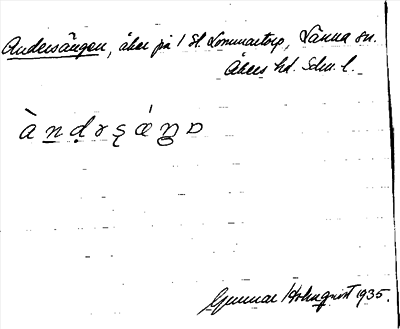 Andersängen, åker på 1 St. Lommartorp, Länna sn.
Åkers hd. Södm. l.
Gunnar Holmqvist 1935.